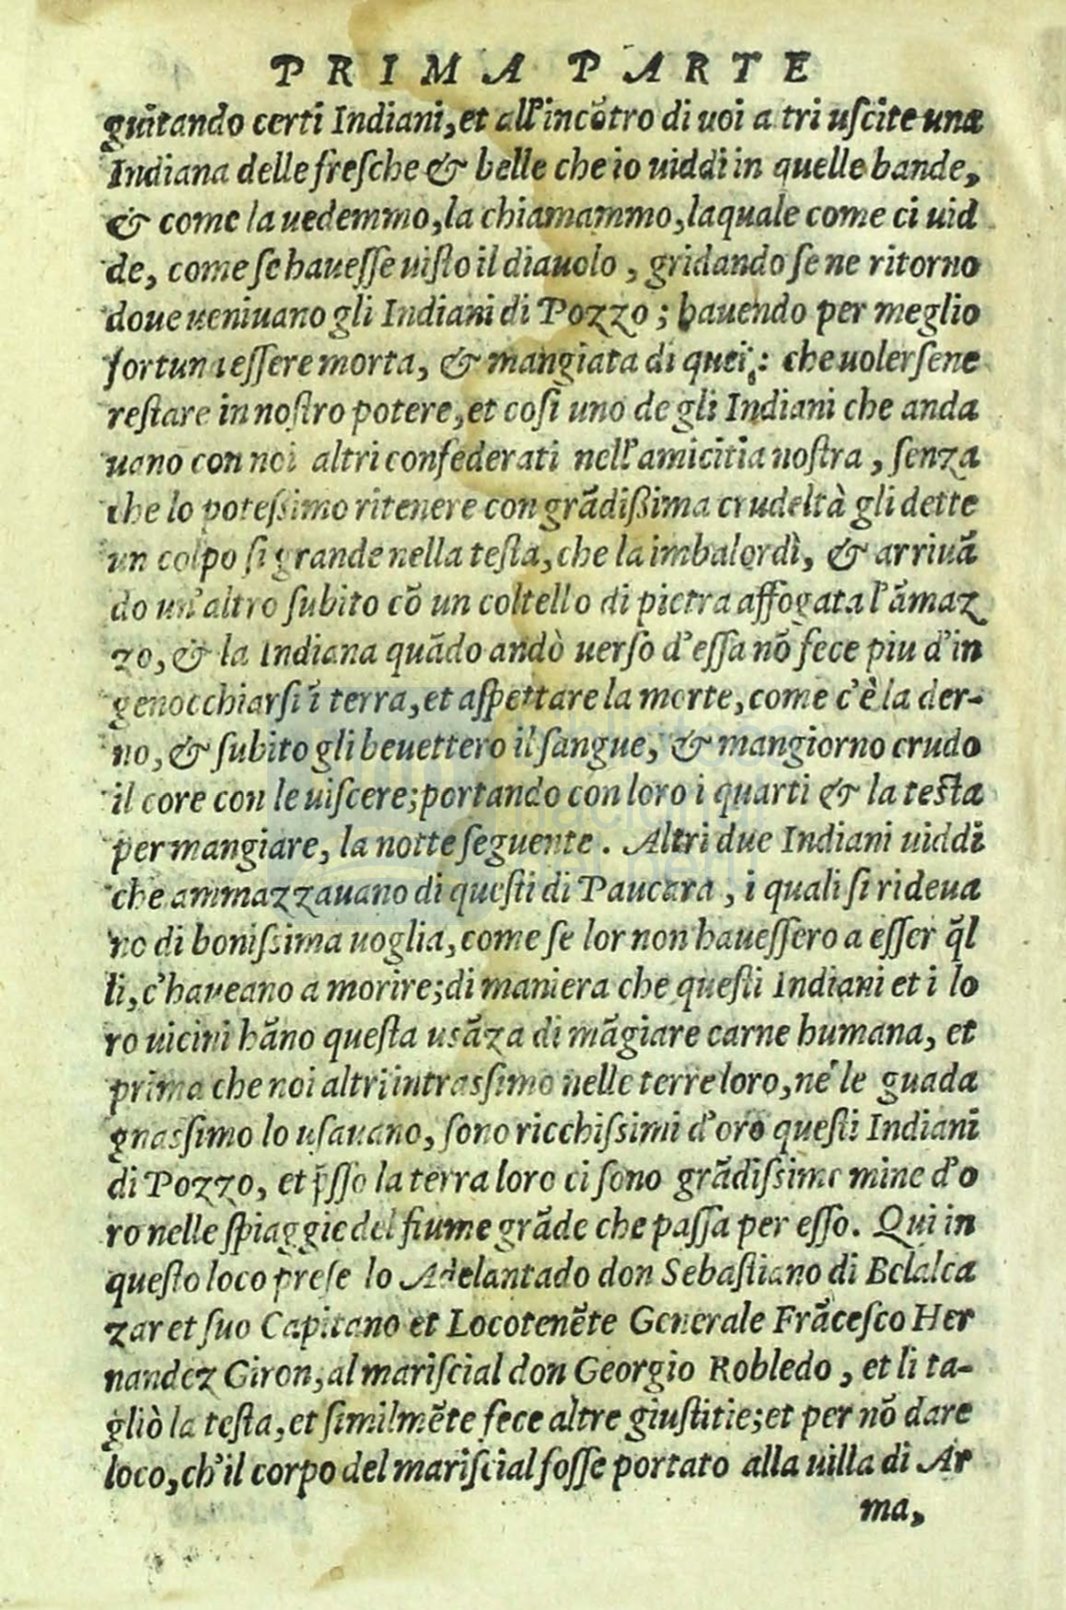 PRIMA PARTE
guitando certi Indiani, et all'incõtro di uoi a tri uscite una
Indiana delle fresche & belle che io uiddi in quelle bande,
& come la uedemmo, la chiamammo, laquale come ci uid
de, come se hauesse uisto il diauolo, gridando se ne ritorno
doue ueniuano gli Indiani di Pozzo; hauendo per meglio
fortuna essere morta, & mangiata di quei,: che uolersene
restare in nostro potere, et cosi uno de gli Indiani che anda
uano con noi altri confederati nell'amicitia nostra, senza
che lo potessimo ritenere con grãdißima crudeltà gli dette
un colpo si grande nella testa, che la imbalordì, & arriuã
do un'altro subito cõ un coltello di pietra affogata l'ãmaz
zo, & la Indiana quãdo andò uerso d'essa nõ fece piu d'in
genocchiarsi ĩ terra, et aspettare la morte, come c'è la der-
no, & subito gli beuettero il sangue, & mangiorno crudo
il core con le uiscere; portando con loro i quarti & la testa
per mangiare, la notte seguente. Altri due Indiani uiddi
che ammazzauano di questi di Paucura, i quali si rideua
no di bonissima uoglia, come se lor non hauessero a esser q̃l
li, c'haueano a morire; di maniera che questi Indiani et i lo
ro uicini hãno questa usãza di mãgiare carne humana, et
prima che noi altri intrassimo nelle terre loro, ne' le guada
gnassimo lo usauano, sono ricchissimi d'oro questi Indiani
di Pozzo, et p̃sso la terra loro ci sono grãdissime mine d'o
ro nelle spiaggie del fiume grãde che passa per esso. Qui in
questo loco prese lo Adelantado don Sebastiano di Belalca
zar et suo Capitano et Locotenẽte Generale Frãcesco Her
nandez Giron, al mariscial don Georgio Robledo, et li ta-
gliò la testa, et similmẽte fece altre giustitie; et per nõ dare
loco, ch'il corpo del mariscial fosse portato alla uilla di Ar
ma,